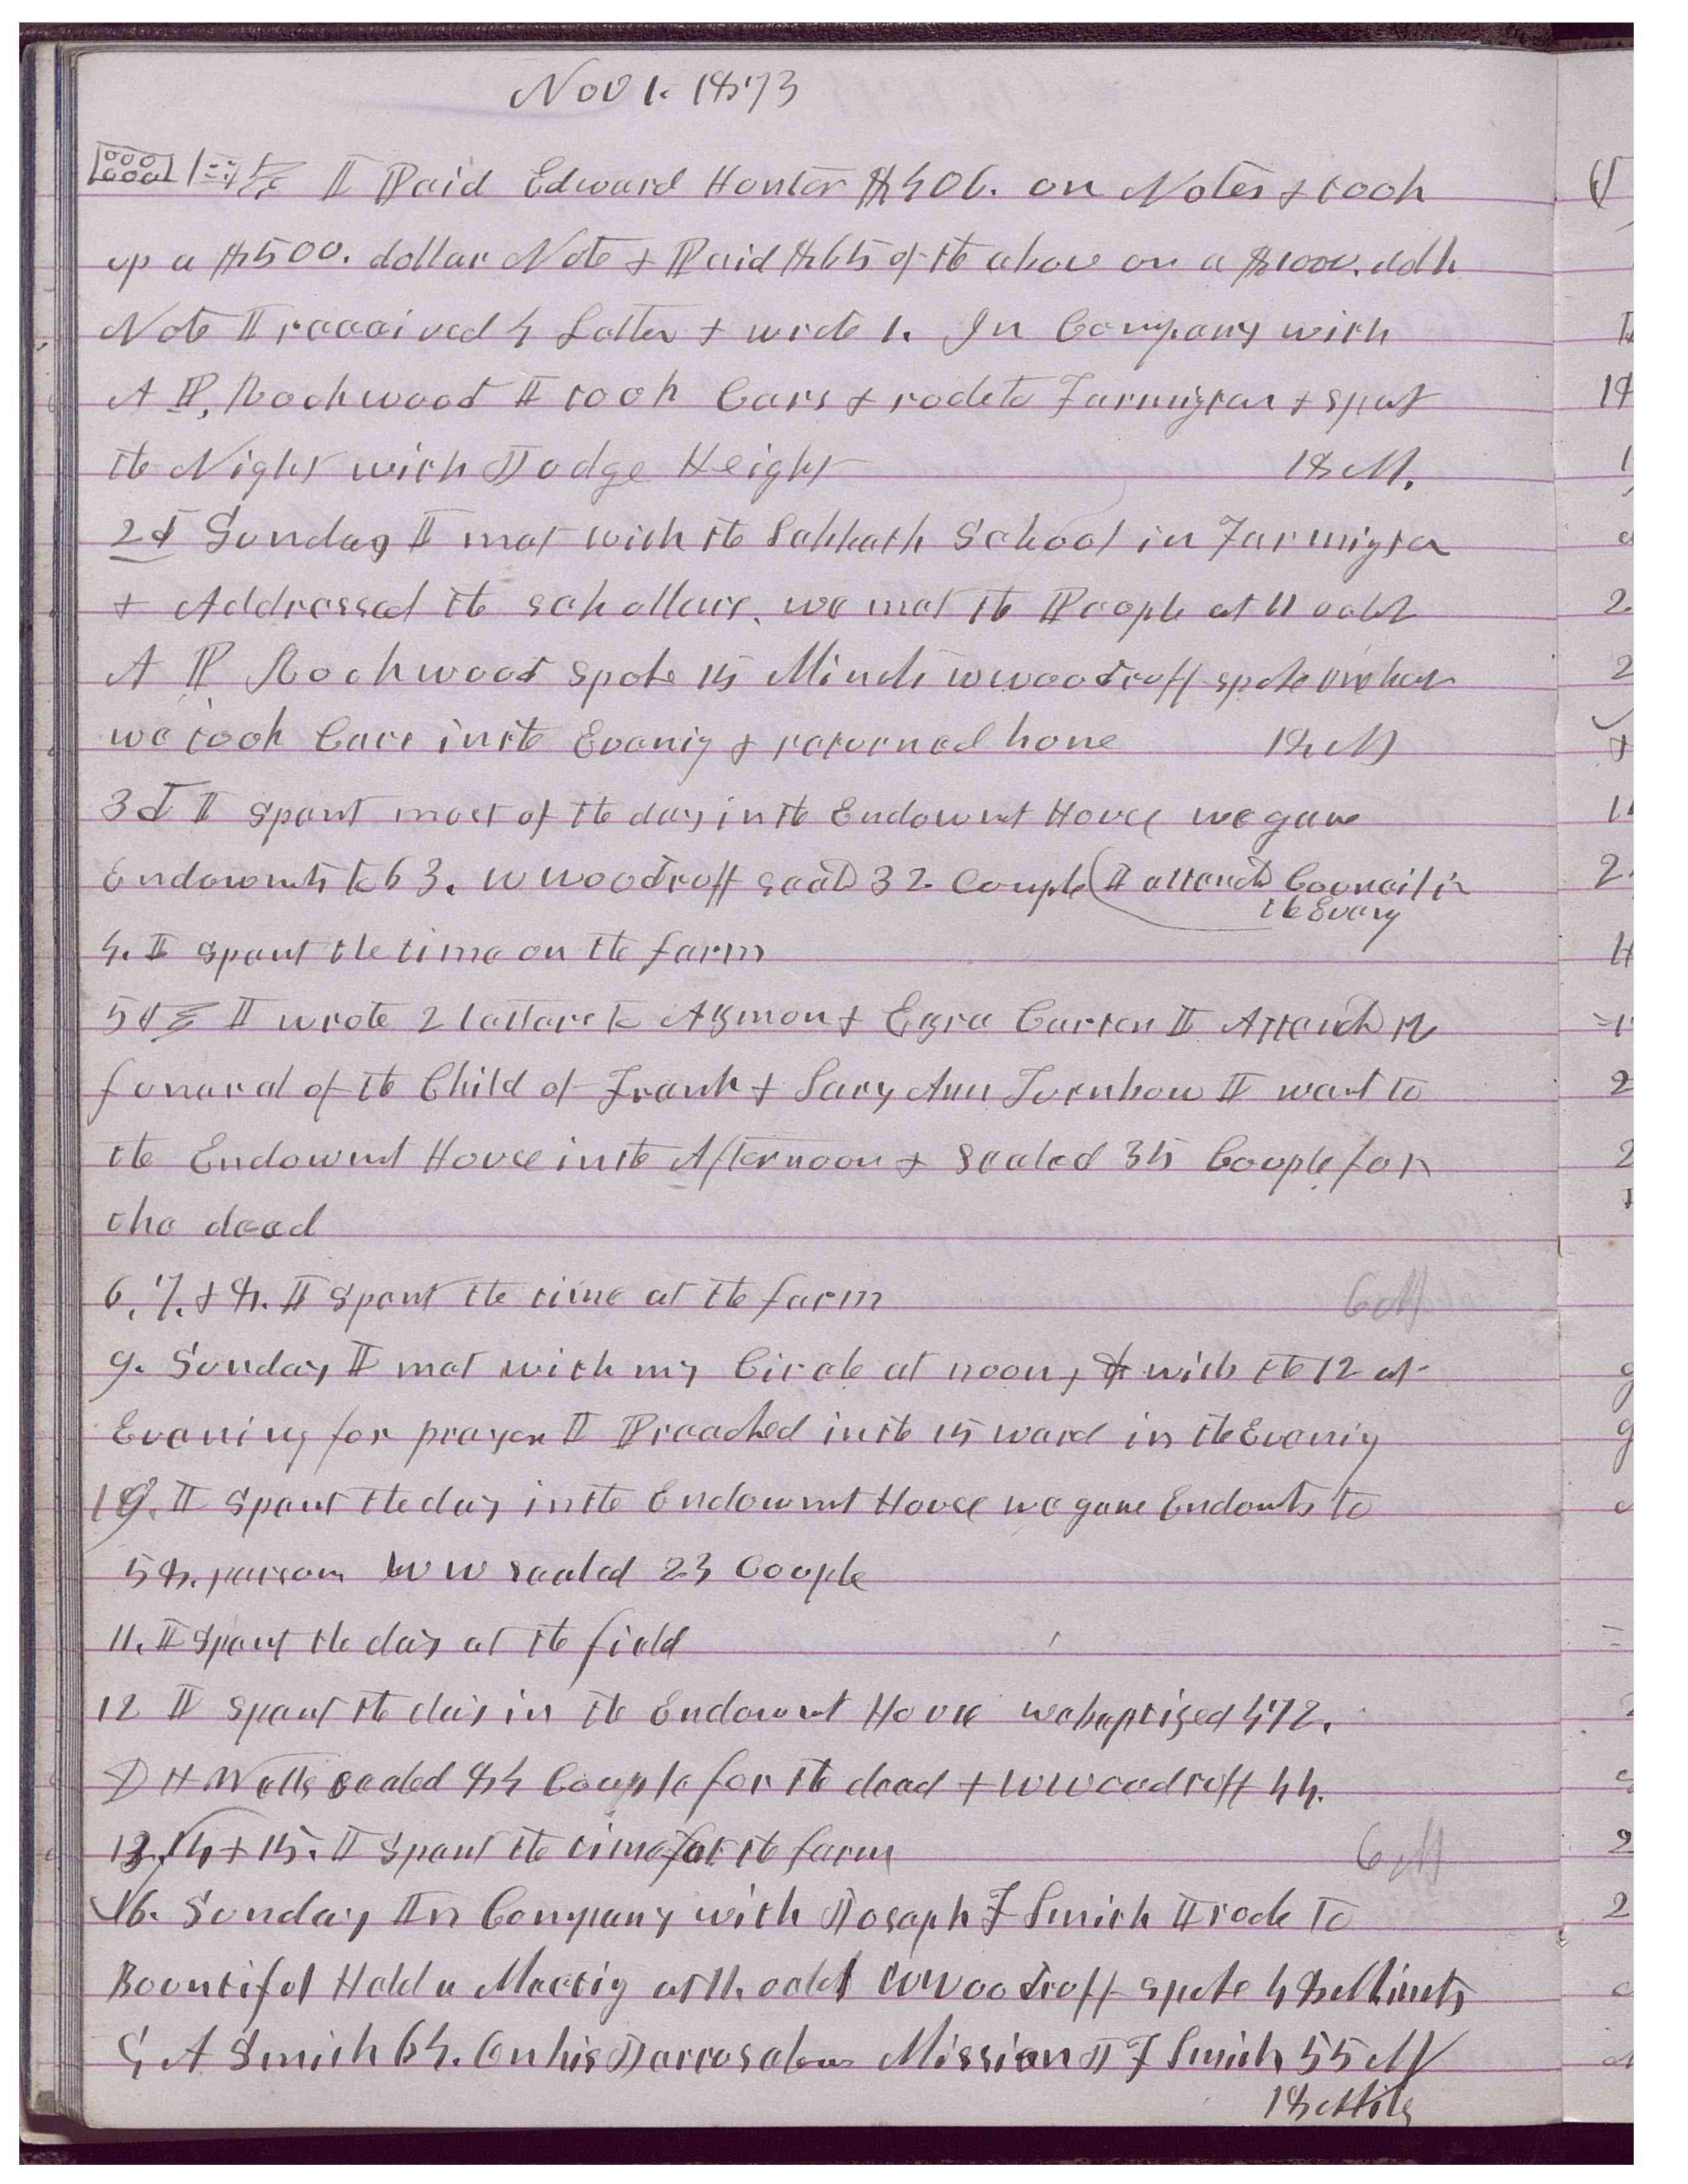 Nov 1. 1873
I Paid Edward Hunter $406. on Notes & took
up a $500. dollar Note & Paid $65 of the above on a $1000. doll
Note I received 4 Letters & wrote 1. In Company with
A P, Rockwood I took Cars & rode to Farmigton & spent
the Night with Judge Height 18 M.
2d Sunday I met with the Sabbath School in Farmigton
& Addressed the schollars. we met the People at 11 oclok
A P Rockwood spoke 15 Minuts W Woodruff spoke one hour
we took Cars in the Evenig & returned home 18 M
3d I spent most of the day in the Endowmt House we gave
Endowmts to 63. W Woodruff seald 32 Couple (I attendd Council in
the Eveng
4. I spent the time on the farm
I wrote 2 letters to Azmon & Ezra Carter I Attendd the
funeral of the Child of Frank & Sary Ann Turnbow I went to
the Endowmt House in the Afternoon & Sealed 35 Couple for
the dead
6, 7. & 8. I spent the time at the farm 6 M
9. Sunday I met with my Circle at noon, & with the 12 at
Evening for prayer I Preached in the 15 ward in the Evenig
10. I spent the day in the Endowmt House we gave Endowts to
58. persons W W sealed 23 Couple
11. I spent the day at the field
12 I spent the day in the Endowmt House we baptized 472.
D H Wells sealed 84 Couple for the dead & W Woodruff 44.
13, 14 & 15. I spent the time at the farm 6 M
16. Sunday In Company with Joseph F Smith I rode to
Bountiful Held a Meetig at 11. oclok W Woodruff spoke 48 Minuts
G A Smith 64. On his Jerrusalem Mission J F Smith 55 M
18 Mils